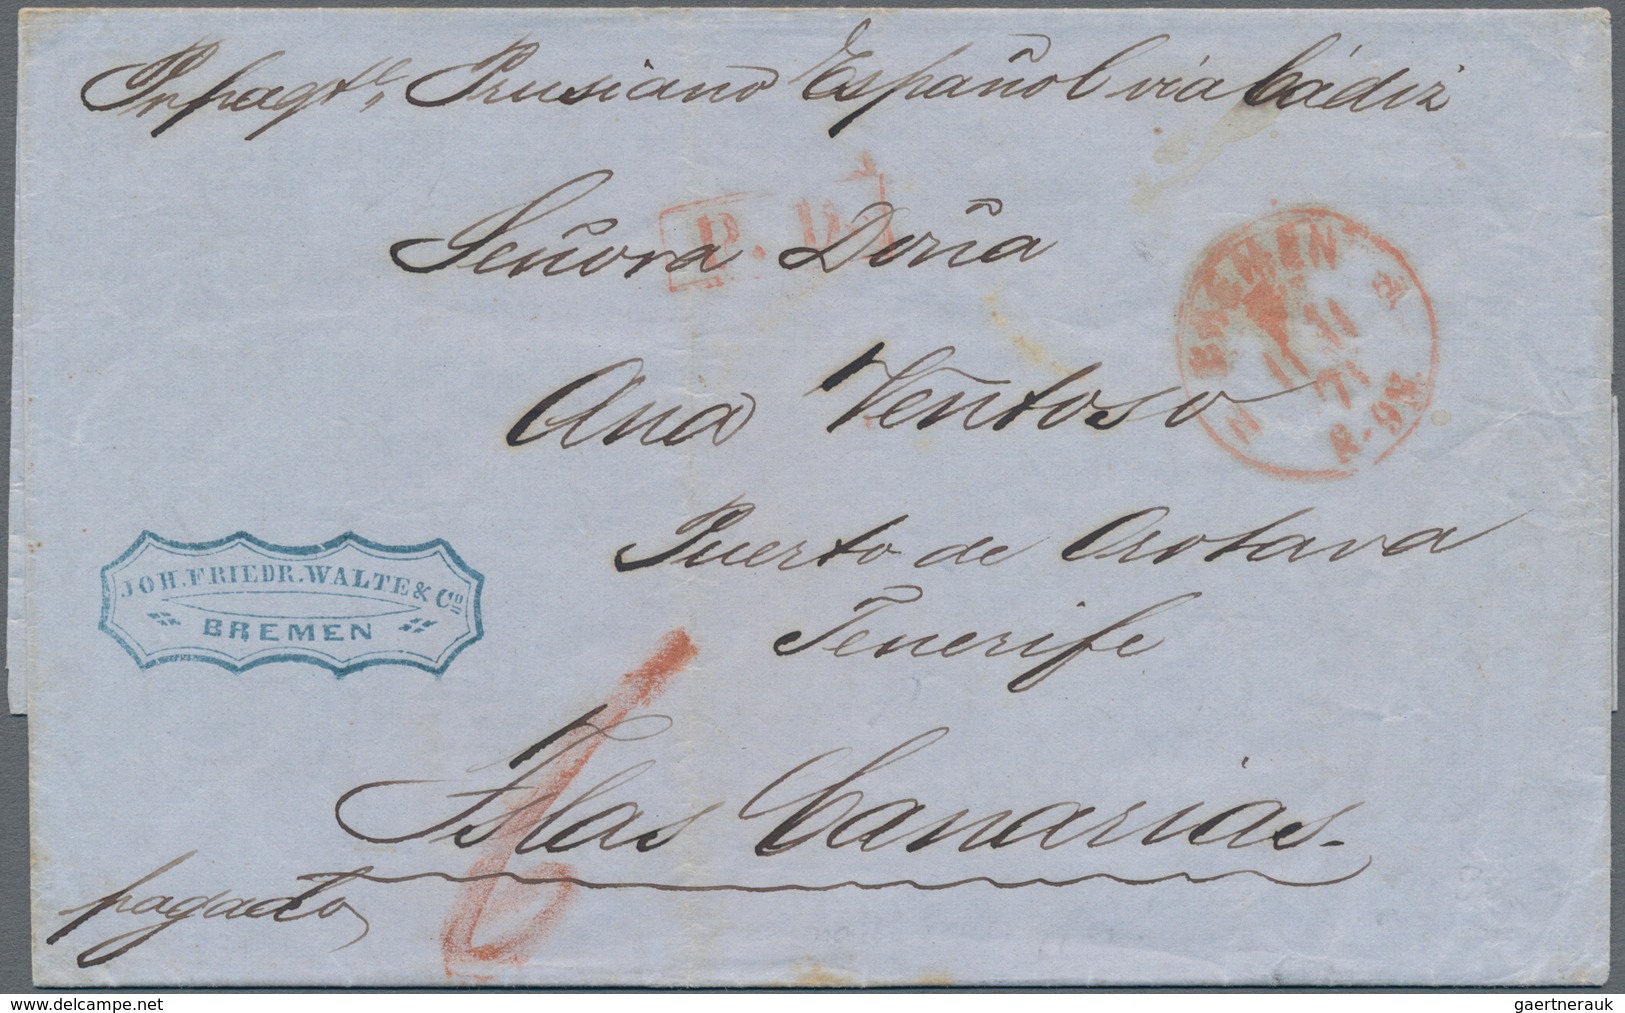 Pr paqte Prusiano Español via Cádiz
P.D.
Señora Doña
BREMEN
11 11
71
8-9 N.
N
Ana Ventoso
Puerto de Orotava
JOH. FRIEDR. WALTE & Co
BREMEN
Tenerife
6
Islas Canarias.
pagado
www.delcampe.net
gaertnerauk